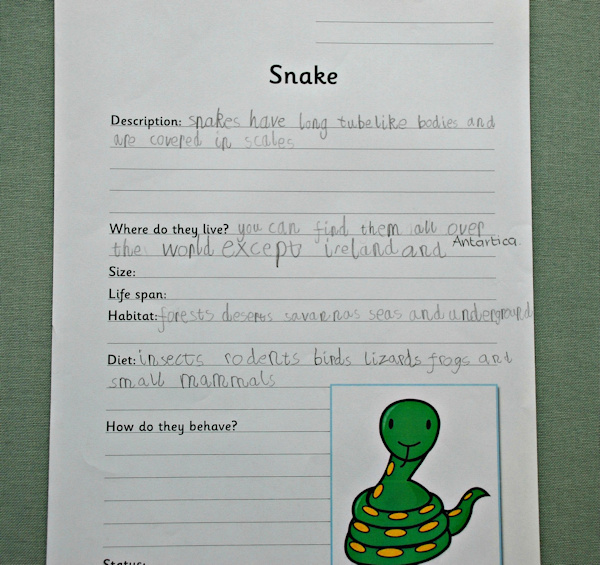 Snake
Description: snakes have long tubelike bodies and
are covered in scales
Where do they live? you can find them all over
the world except ireland and Antartica.
Size:
Life span:
Habitat: forests deserts savannas seas and underground
Diet: insects rodents birds lizards frogs and
small mammals
How do they behave?
Status: